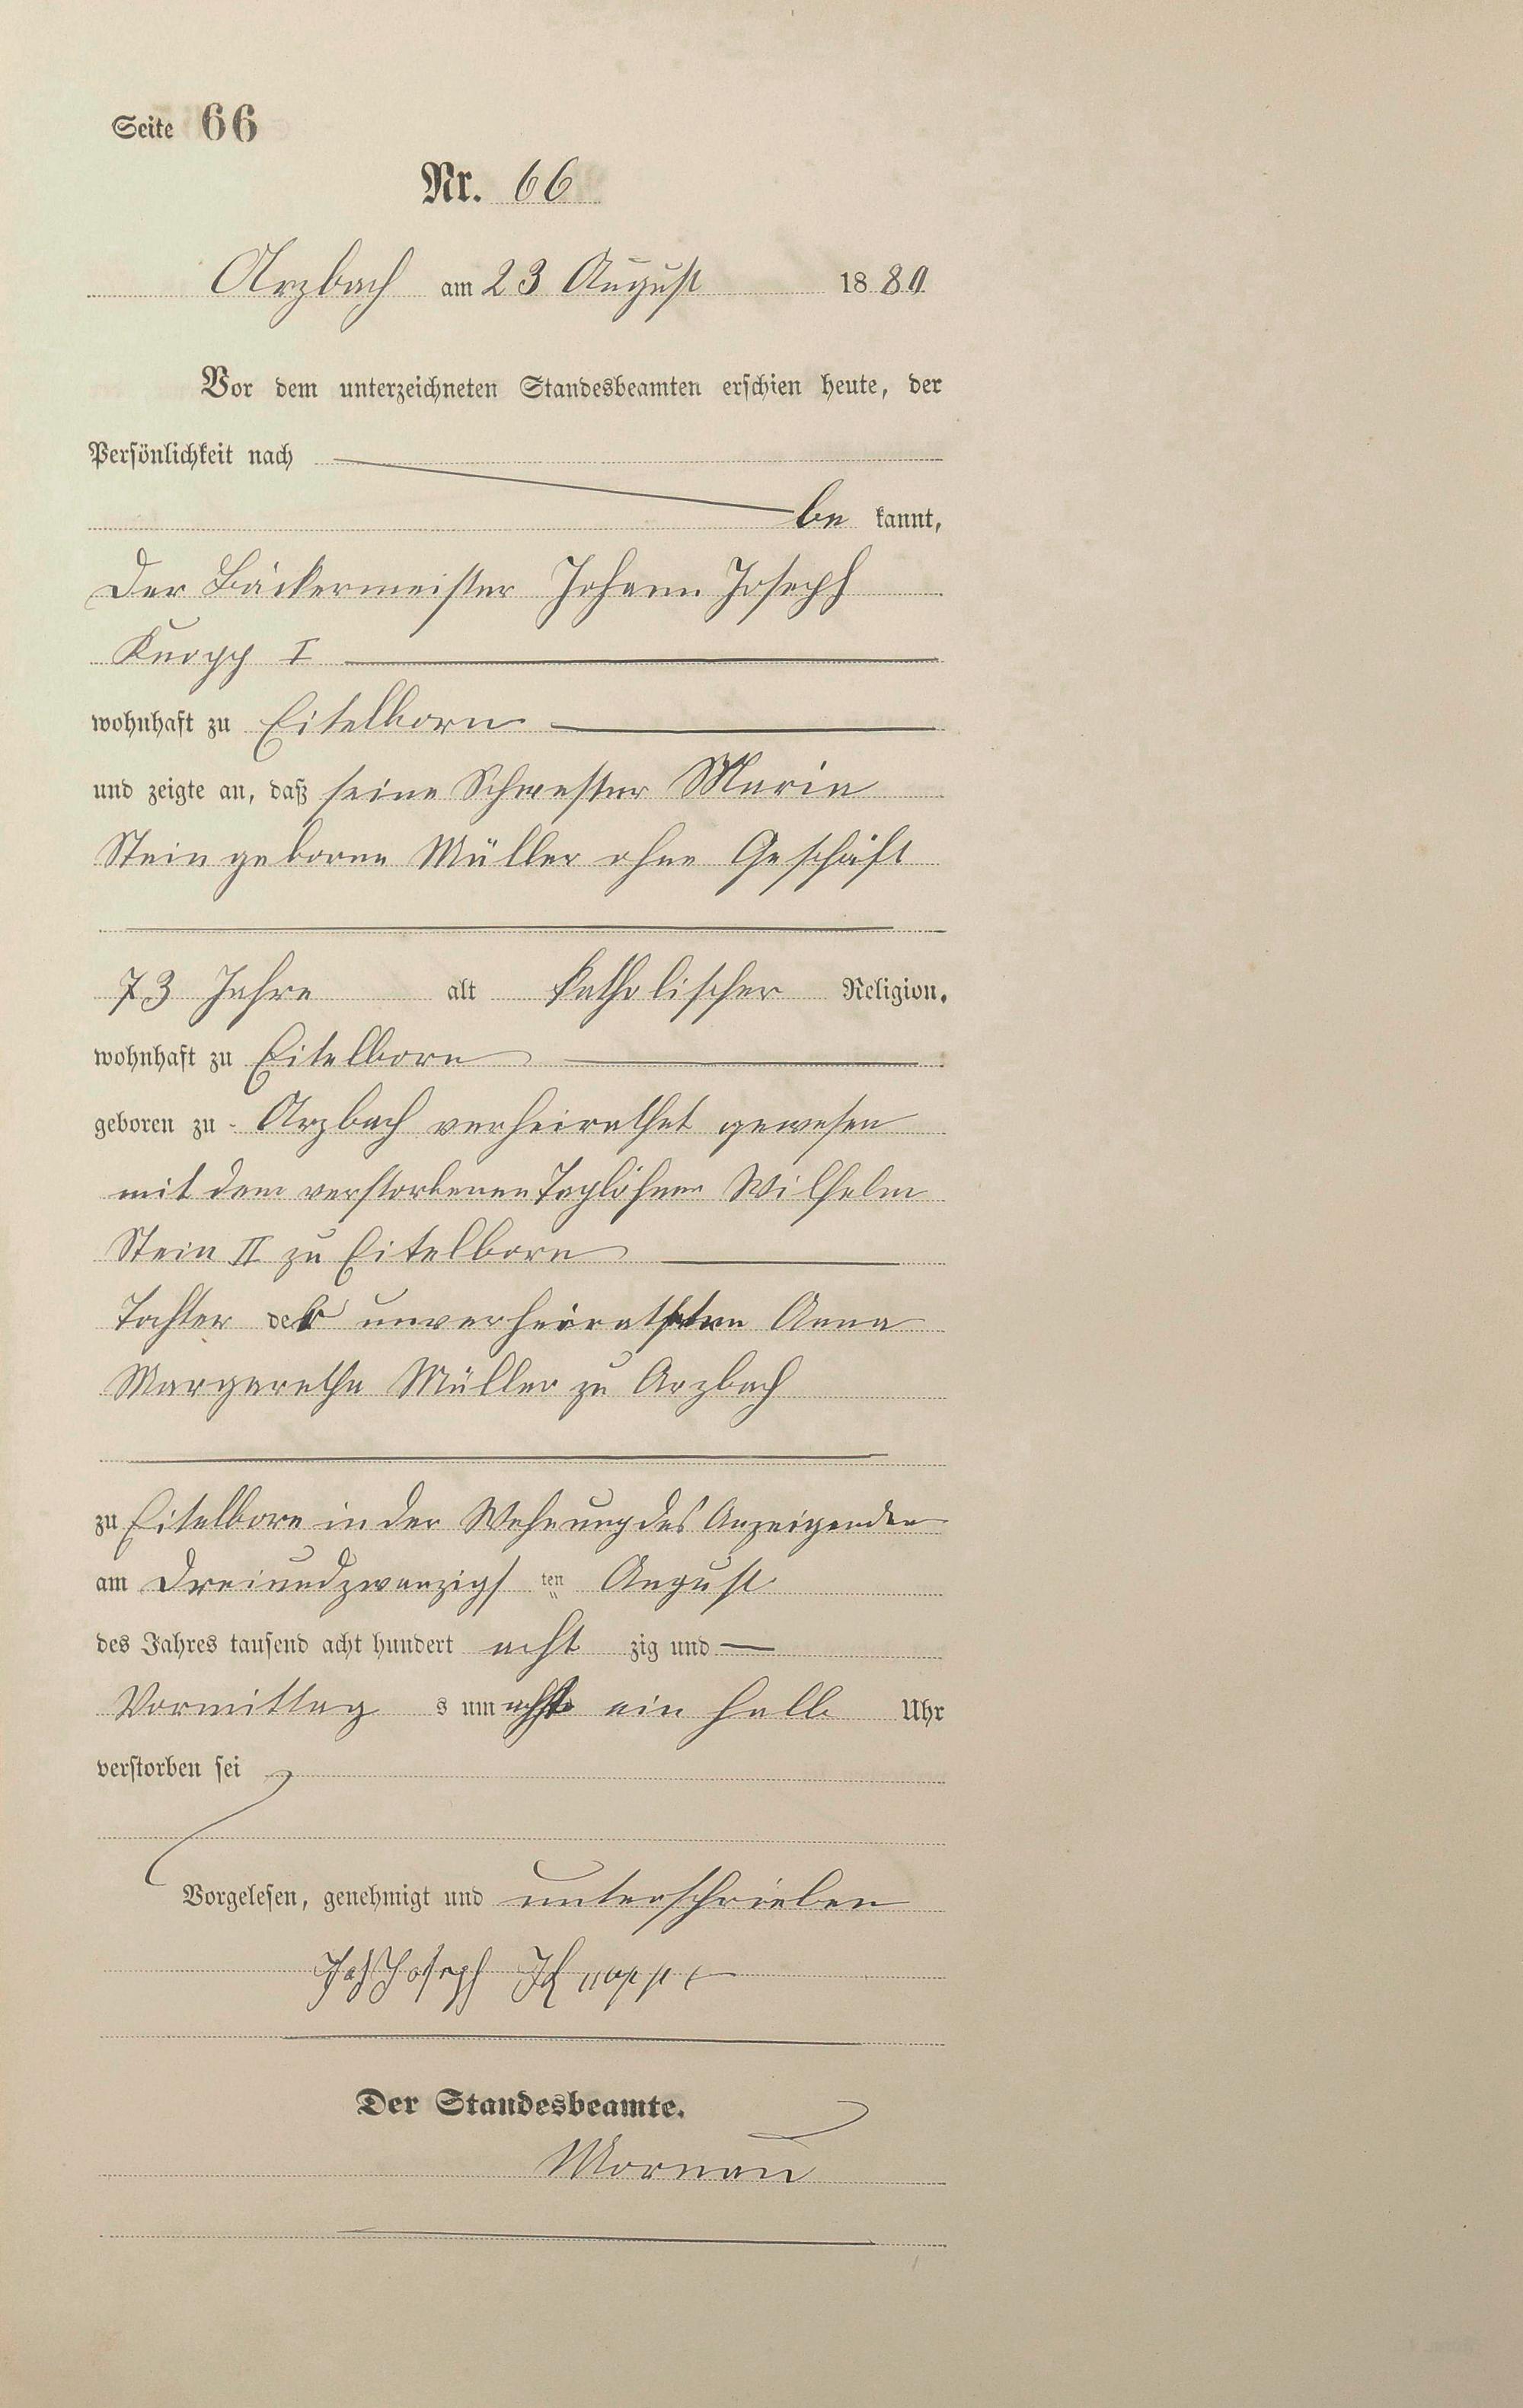 Seite 66
Nr. 66
Arzbach am 23 August 1880
Vor dem unterzeichneten Standesbeamten erschien heute, der
Persönlichkeit nach
be kannt,
Der Bäckermeister Johann Joseph
Knopp I
wohnhaft zu Eitelborn
und zeigte an, daß seine Schwester Maria
Stein geborne Müller ohne Geschäft
73 Jahre alt katholischer Religion.
wohnhaft zu Eitelborn
geboren zu Arzbach verheirathet gewesen
mit dem verstorbenen Taglöhner Wilhelm
Stein II zu Eitelborn
Tochter der unverheiratheten Anna
Margaretha Müller zu Arzbach
zu Eitelborn in der Wohnung des Anzeigenden
am Dreiundzwanzigs ten August
des Jahres tausend acht hundert acht zig und —
Vormittag s um acht ein halb Uhr
verstorben sei
Vorgelesen, genehmigt und unterschrieben
Joh Joseph Knopp
Der Standesbeamte.
Mornau